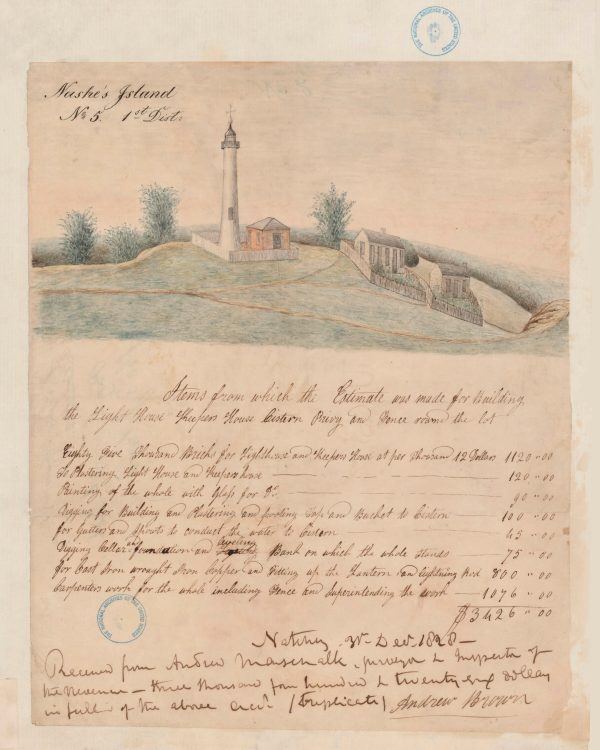 THE NATIONAL ARCHIVES OF THE UNITED STATES
Nashe's Island
No 5. 1st Dist:
Items from which the Estimate was made for Building
the Light House Keepers House Cistern Privy and Fence round the lot
Eighty Five Thousand Bricks for Lighthouse and Keepers House at per Thousand 12 Dollars 1120 " 00
To Plastering Light House and Keepers house 120 " 00
Painting of the whole with Glass for Do. 90 " 00
Digging for Building and Plastering and footing Top and Bucket to Cistern 100 " 00
for Gutters and Spouts to conduct the water to Cistern 45 " 00
Digging Cellar and foundation and leveling Bank on which the whole stands 75 " 00
for Cast Iron wrought Iron Copper and fitting up the Lantern and lightning Rod 800 " 00
Carpenters work for the whole including Fence and superintending the work 1076 " 00
$3426 " 00
Natchez, 3d Decr 1828
Received from Andrew Marschalk, surveyor & Inspector of
the revenue — three thousand four hundred & twenty six dollars
in full of the above acct. (Duplicate) Andrew Brown
THE NATIONAL ARCHIVES OF THE UNITED STATES